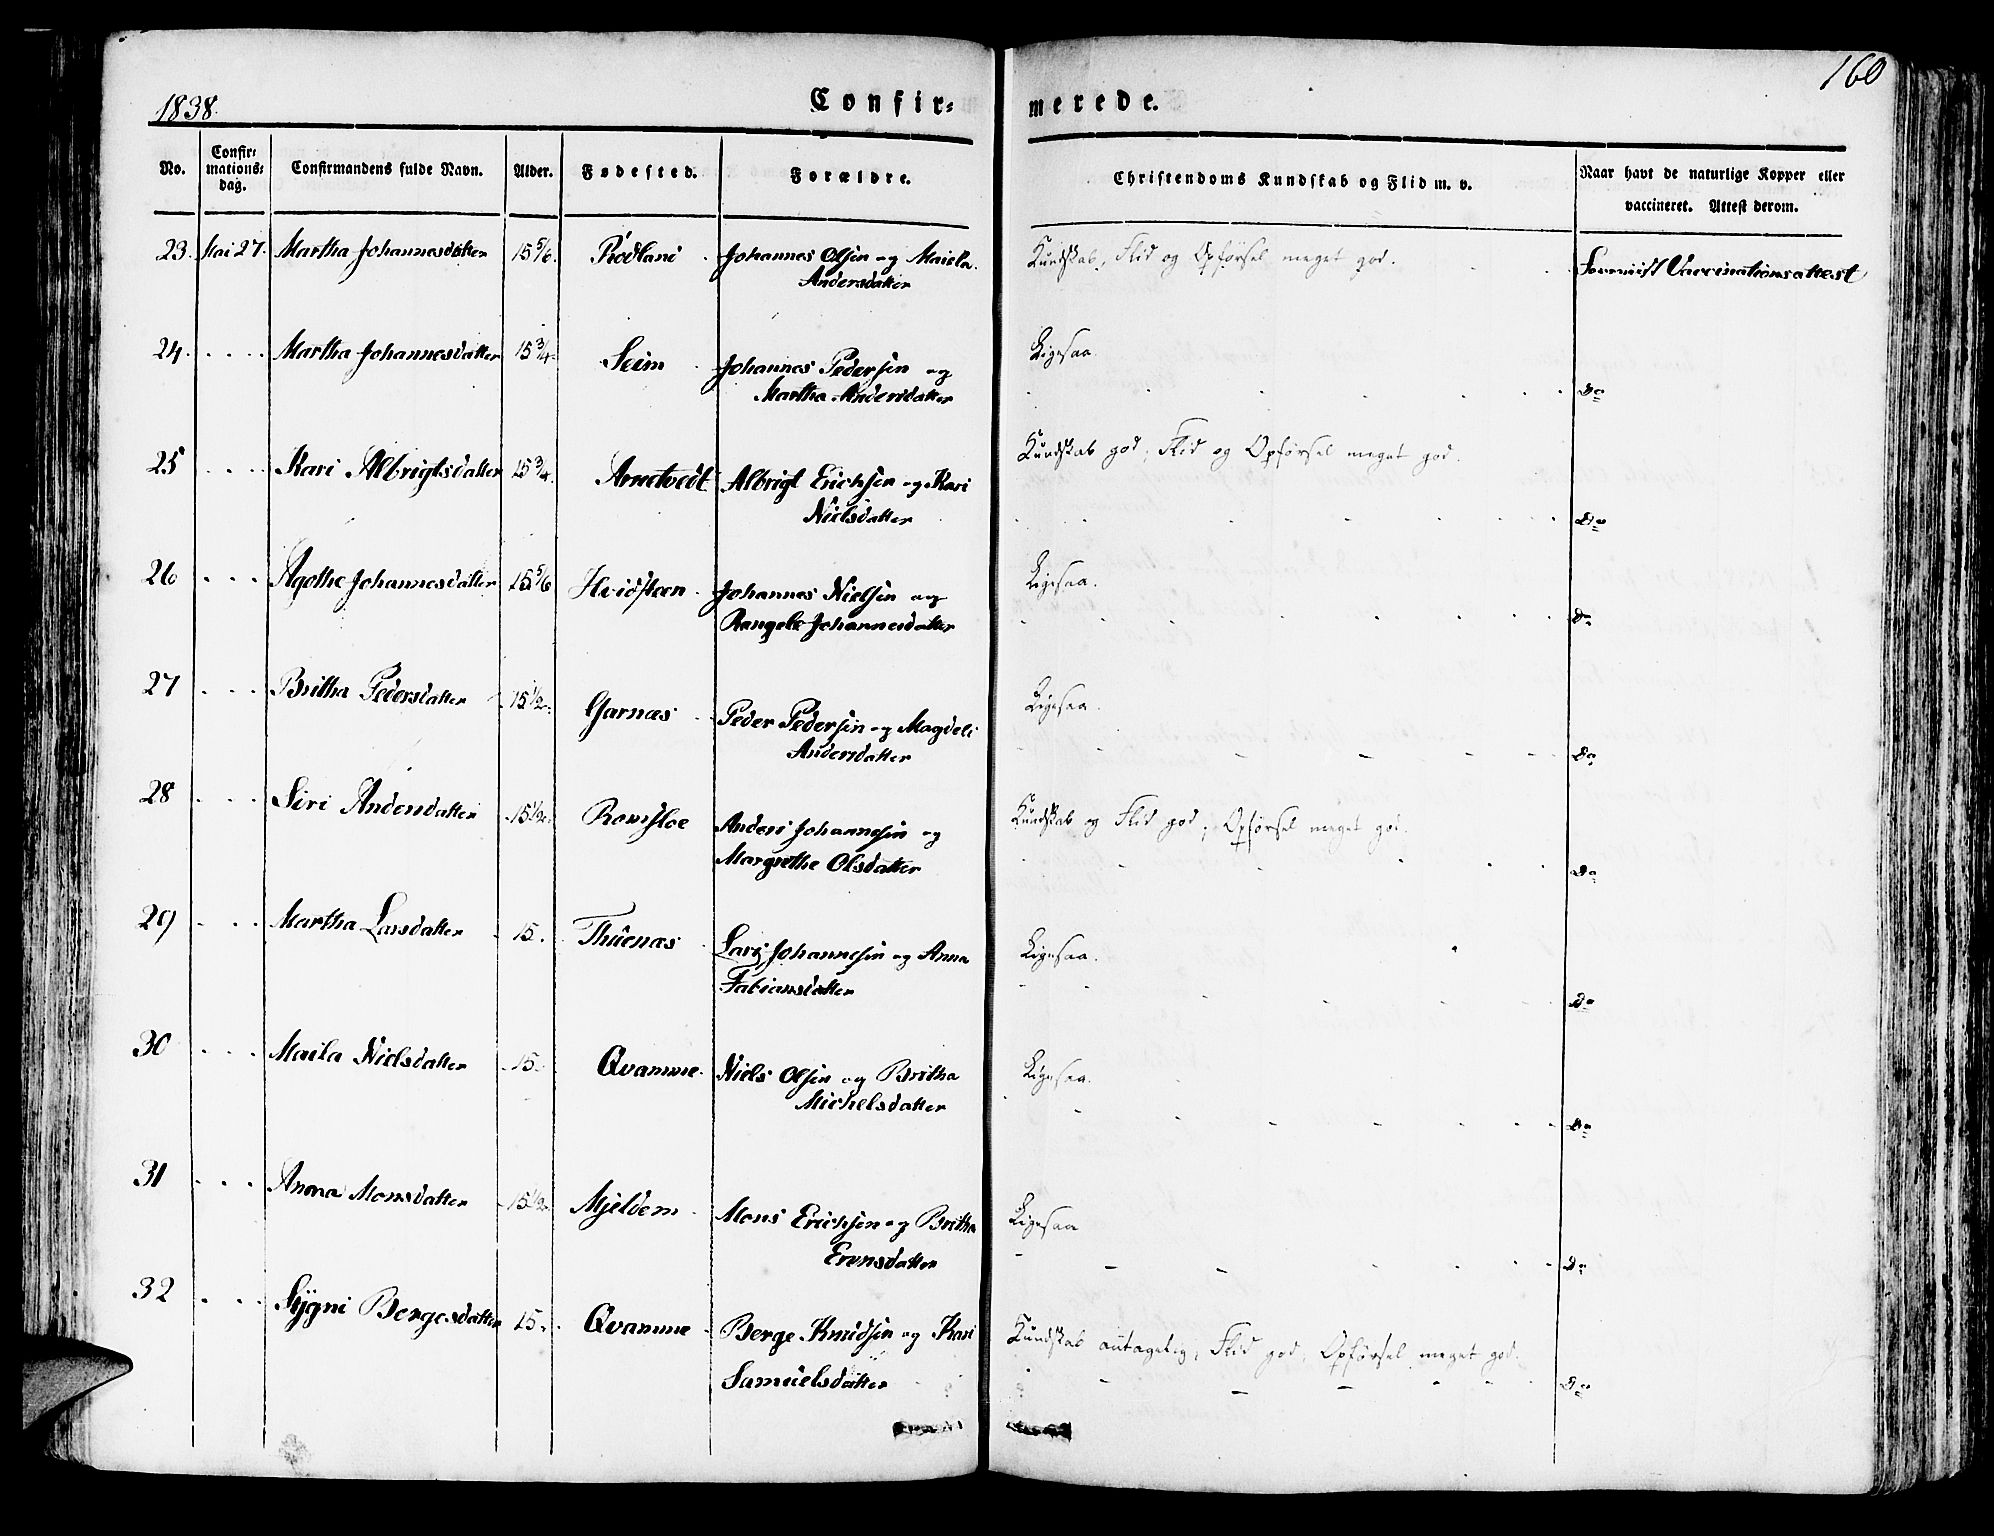 160
1838.
Confir- merede.
No.
Confir-
mations-
dag.
Confirmandens fulde Navn.
Alder.
Fødested.
Forældre.
Christendoms Kundskab og Flid m. v.
Naar havt de naturlige Kopper eller
vaccineret. Attest derom.
23. Mai 27. Martha Johannesdatter 15 5/6. Rødland Johannes Olsen og Maiela
Andersdatter
Kundskab, Flid og Opførsel meget god.
Foreviist Vaccinationsattest
24. Martha Johannesdatter 15 3/4. Seim Johannes Pedersen og
Martha Andersdatter
Ligesaa.
Do
25 Kari Albrigtsdatter 15 3/4. Arnetvedt Albrigt Erichsen og Kari
Nielsdatter
Kundskab god, Flid og Opførsel meget god.
Do
26 Agothe Johannesdatter 15 5/6 Hvidsteen Johannes Nielsen og
Rangele Johannesdatter
Ligesaa.
Do
27 Britha Pedersdatter 15 1/2. Garnæs Peder Pedersen og Magdeli
Andersdatter
Ligesaa.
Do
28 Siri Andersdatter 15 1/2. Romsloe Anders Johannesen og
Margrethe Olsdatter
Kundskab og Flid god, Opførsel meget god.
Do
29 Martha Larsdatter 15. Thuenæs Lars Johannesen og Anna
Fabiansdatter
Ligesaa.
Do
30 Maila Nielsdatter 15. Qvamme Niels Olsen og Britha
Michelsdatter
Ligesaa.
Do
31 Anna Monsdatter 15 1/2. Mjeldem Mons Erichsen og Britha
Erensdatter
Ligesaa
Do
32 Sygni Bergesdatter 15. Qvamme Berge Knudsen og Kari
Samuelsdatter
Kundskab antagelig, Flid god, Opførsel meget god.
Do